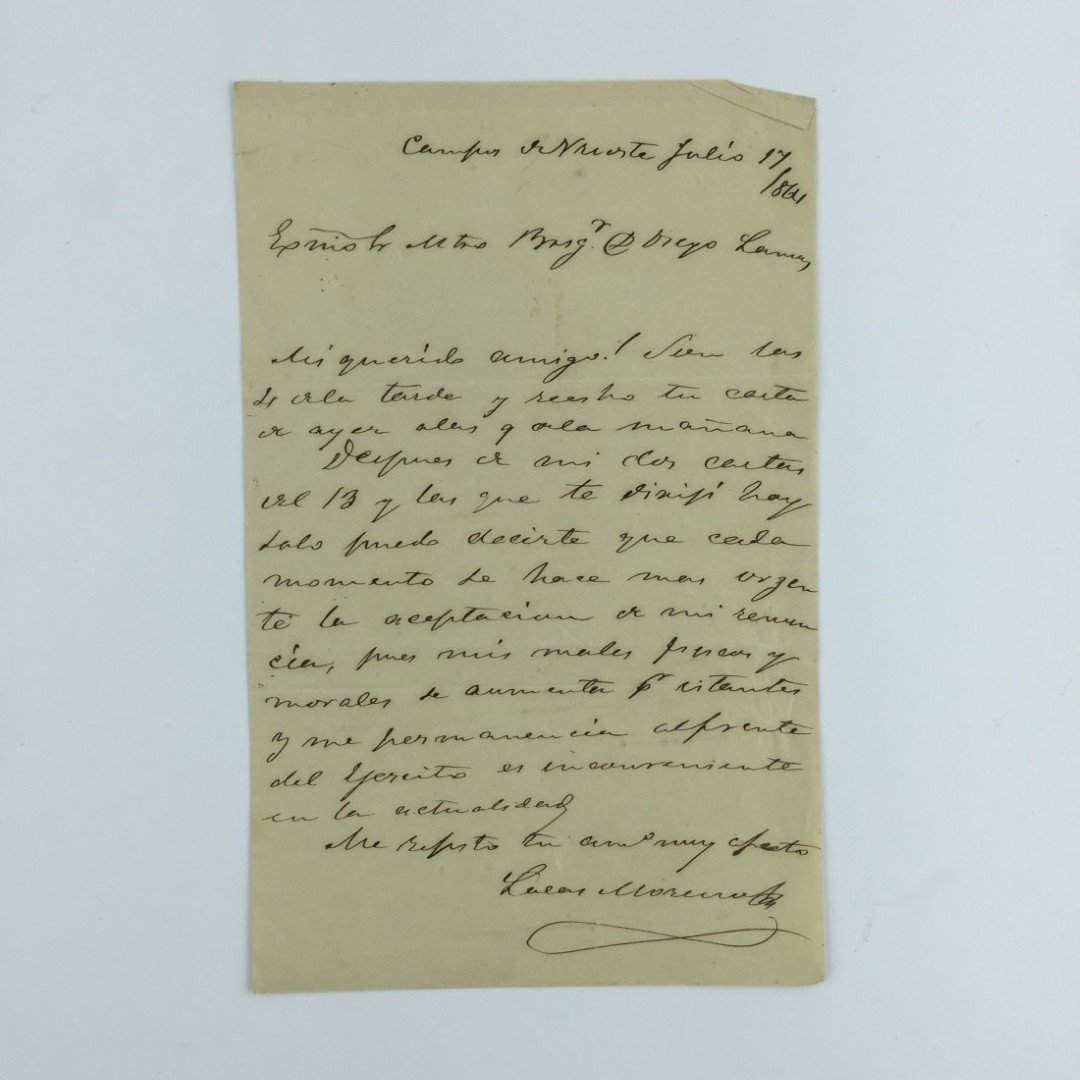 Campos de Julio 17
/864
Exmo Sr Mtro Brigr D Diego Lamas
Mi querido amigo! Son las
4 dela tarde y recibo tu carta
de ayer alas 9 dela mañana
Despues de mis dos cartas
del 13 y las que te dirijí hoy
solo puedo decirte que cada
momento se hace mas urgen
te la aceptacion de mi renun
cia, pues mis males fisicos y
morales se aumenta pr istantes
y me permanencia alfrente
del Ejercito es inconveniente
en la actualidad
Me repito tu amo muy afecto
Lucas Moreno